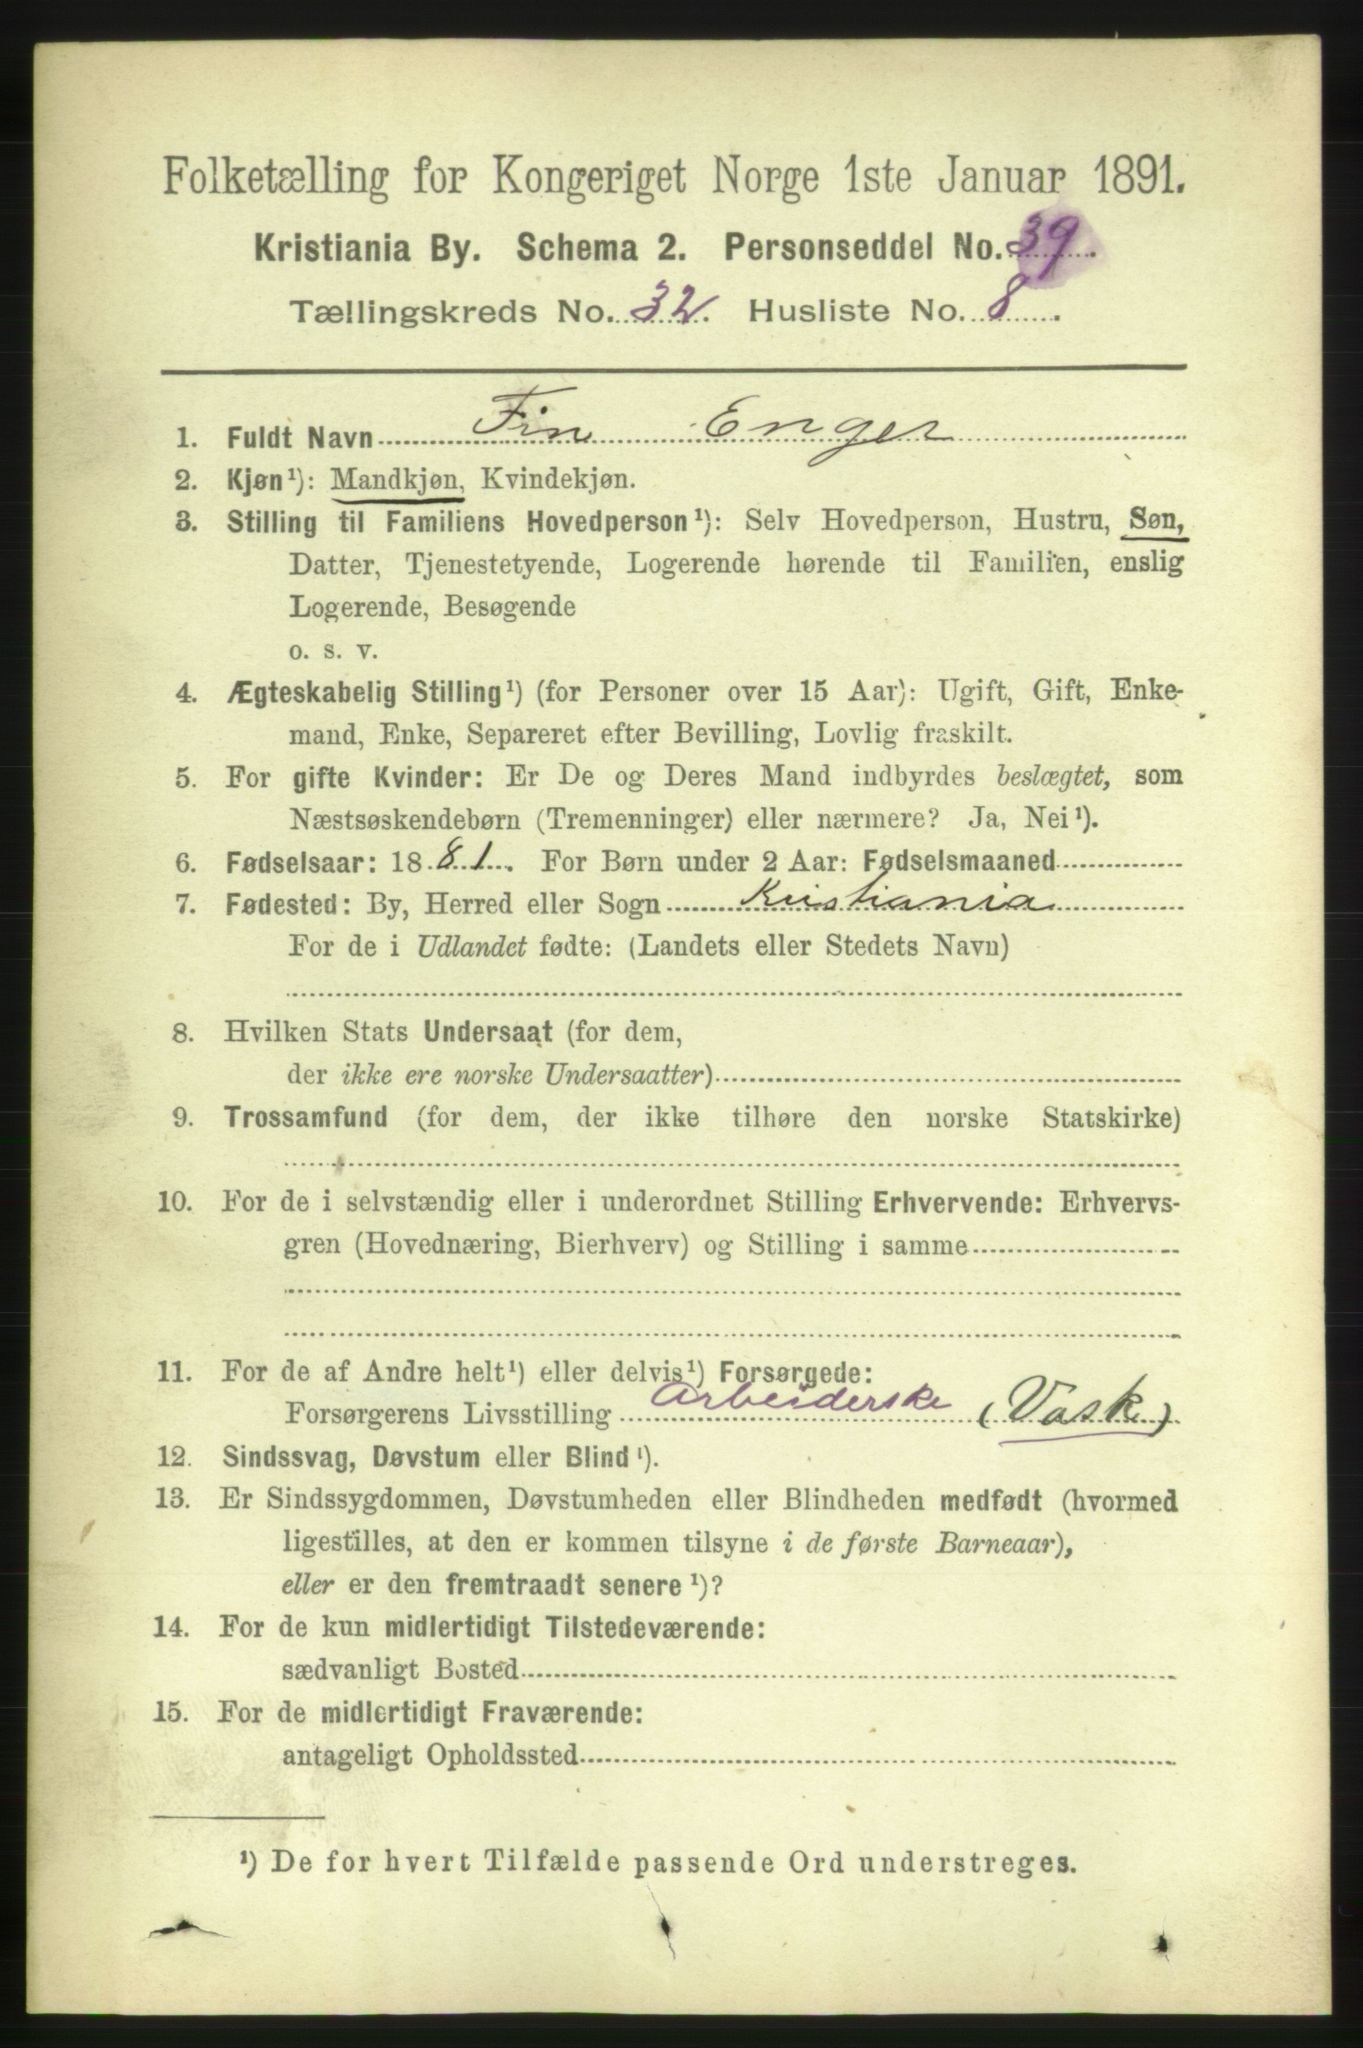 Folketælling for Kongeriget Norge 1ste Januar 1891.
Kristiania By. Schema 2. Personseddel No. 39.
Tællingskreds No. 32. Husliste No. 8.
1. Fuldt Navn Fin Enger
2. Kjøn¹): Mandkjøn, Kvindekjøn.
3. Stilling til Familiens Hovedperson¹): Selv Hovedperson, Hustru, Søn,
Datter, Tjenestetyende, Logerende hørende til Familien, enslig
Logerende, Besøgende
o. s. v.
4. Ægteskabelig Stilling¹) (for Personer over 15 Aar): Ugift, Gift, Enke-
mand, Enke, Separeret efter Bevilling, Lovlig fraskilt.
5. For gifte Kvinder: Er De og Deres Mand indbyrdes beslægtet, som
Næstsøskendebørn (Tremenninger) eller nærmere? Ja, Nei¹).
6. Fødselsaar: 1881. For Børn under 2 Aar: Fødselsmaaned
7. Fødested: By, Herred eller Sogn Kristiania
For de i Udlandet fødte: (Landets eller Stedets Navn)
8. Hvilken Stats Undersaat (for dem,
der ikke ere norske Undersaatter)
9. Trossamfund (for dem, der ikke tilhøre den norske Statskirke)
10. For de i selvstændig eller i underordnet Stilling Erhvervende: Erhvervs-
gren (Hovednæring, Bierhverv) og Stilling i samme
11. For de af Andre helt¹) eller delvis¹) Forsørgede:
Forsørgerens Livsstilling Arbeiderske (Vask)
12. Sindssvag, Døvstum eller Blind¹).
13. Er Sindssygdommen, Døvstumheden eller Blindheden medfødt (hvormed
ligestilles, at den er kommen tilsyne i de første Barneaar),
eller er den fremtraadt senere¹)?
14. For de kun midlertidigt Tilstedeværende:
sædvanligt Bosted
15. For de midlertidigt Fraværende:
antageligt Opholdssted
¹) De for hvert Tilfælde passende Ord understreges.